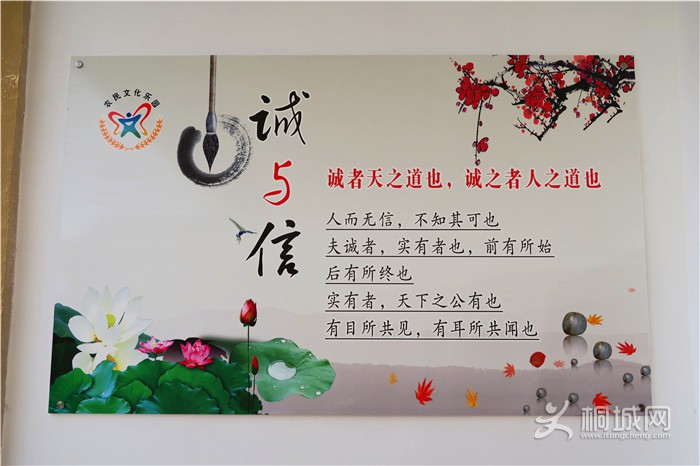 农民文化乐园
诚与信
诚者天之道也，诚之者人之道也
人而无信，不知其可也
夫诚者，实有者也，前有所始
后有所终也
实有者，天下之公有也
有目所共见，有耳所共闻也
桐城网
www.itongcheng.com